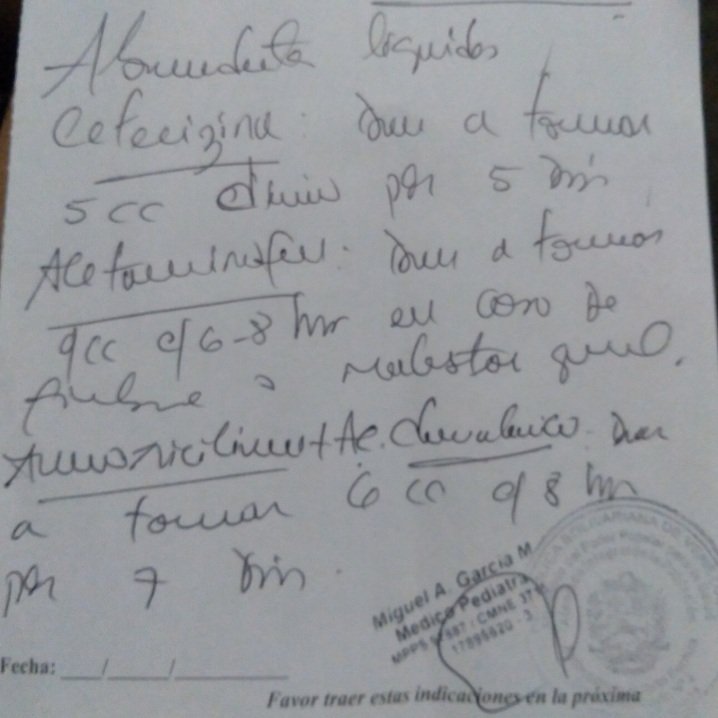 Abundante liquidos
Cetecizina: Dar a tomar
5 cc diario por 5 días
Acetaminofen: Dar a tomar
9cc c/6-8 hr en caso de
fiebre o malestar gral.
Amoxicilina + Ac. Clavulanico. Dar
a tomar 6 cc c/ 8 hr
por 7 días.
Miguel A. García M
Medico Pediatra
Fecha: ____/______/________
Favor traer estas indicaciones en la próxima